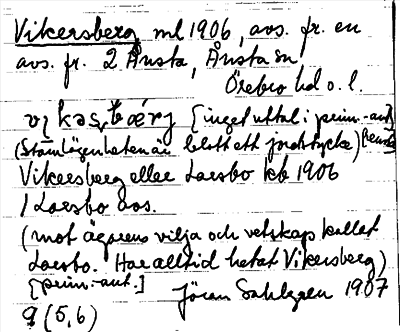 Vikersberg ml 1906, avs. fr. en
avs. fr. 2 Ånsta, Ånsta sn
Örebro hd o. l.
[inget uttal i prim.-ant.]
(Stamlägenheten är blott ett jordstycke)
Vikersberg eller Larsbo kb 1906
/ Larsbo avs.
(mot ägarens vilja och vetskap kallat
Larsbo. Har alltid hetat Vikersberg)
[prim.-ant.]
Jöran Sahlgren 1907
9 (5,6)